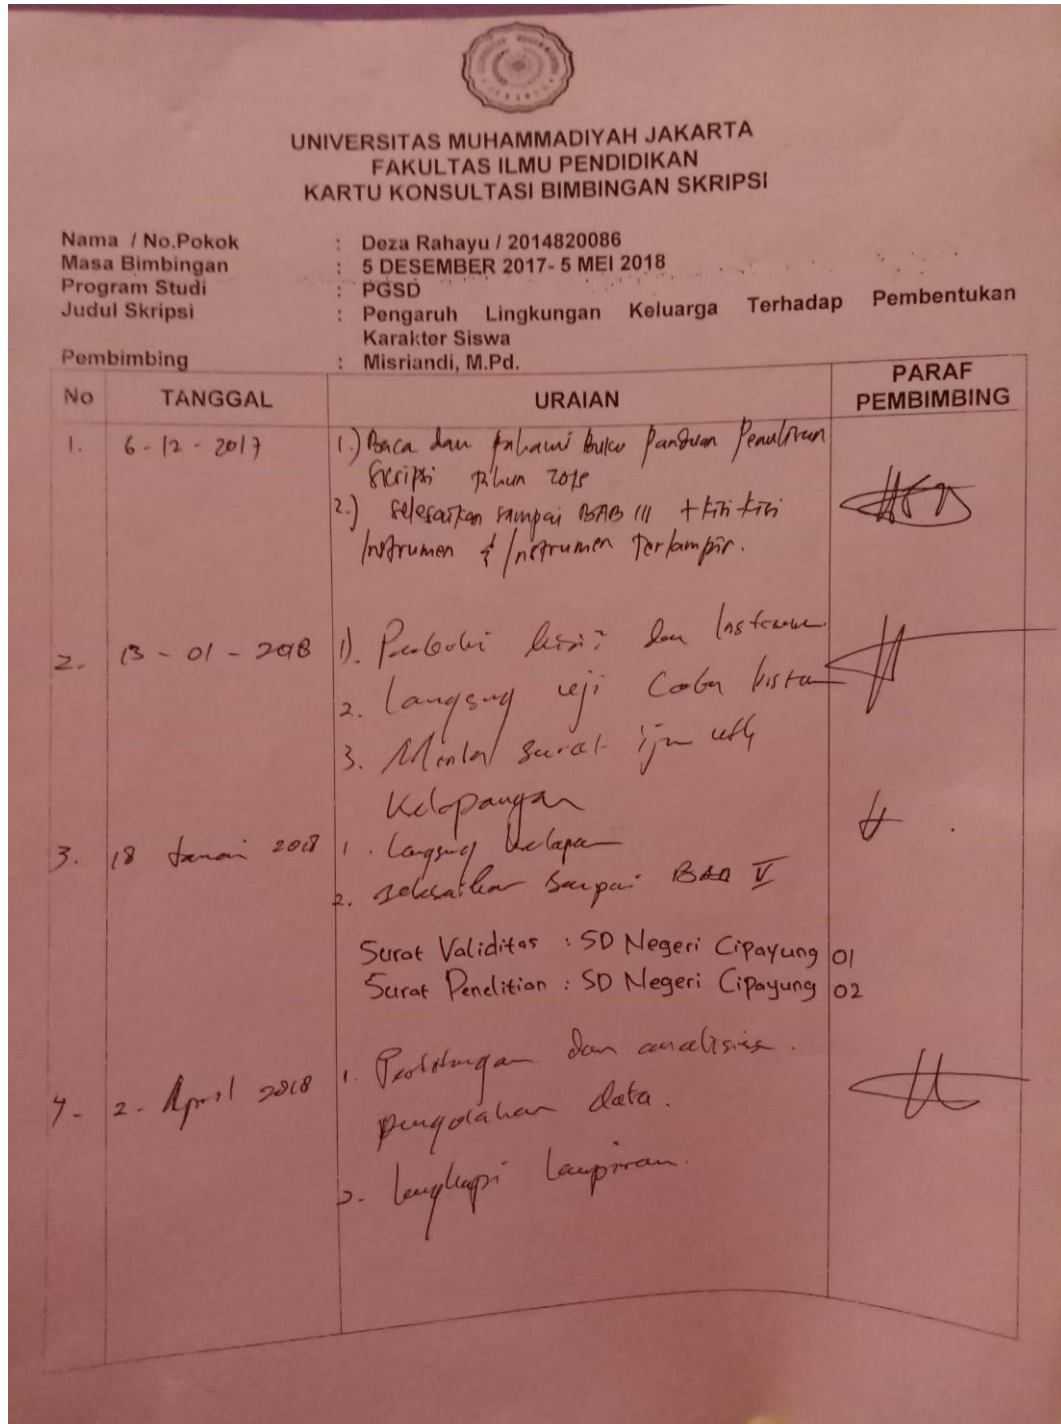 UNIVERSITAS MUHAMMADIYAH JAKARTA
FAKULTAS ILMU PENDIDIKAN
KARTU KONSULTASI BIMBINGAN SKRIPSI
Nama / No.Pokok : Deza Rahayu / 2014820086
Masa Bimbingan : 5 DESEMBER 2017- 5 MEI 2018
Program Studi : PGSD
Judul Skripsi : Pengaruh Lingkungan Keluarga Terhadap Pembentukan
Karakter Siswa
Pembimbing : Misriandi, M.Pd.
No TANGGAL URAIAN PARAF PEMBIMBING
1. 6-12-2017 1.) Baca dan pahami Buku Panduan Penulisan
Skripsi Tahun
2.) selesaikan sampai BAB III + kisi-kisi
Instrumen & Instrumen Terlampir.
2. 13-01-2018 1). kisi² dan Instrumen
2. Langsung uji Coba
3. Minta surat ijin utk
Kelapangan
3. 18 Januari 2018 1. Langsung kelapan
2. selesaikan sampai BAB V
Surat Validitas : SD Negeri Cipayung 01
Surat Penelitian : SD Negeri Cipayung 02
4. 2. April 2018 1. Perhitungan dan analisis.
pengolahan data.
2. lengkapi lampiran.